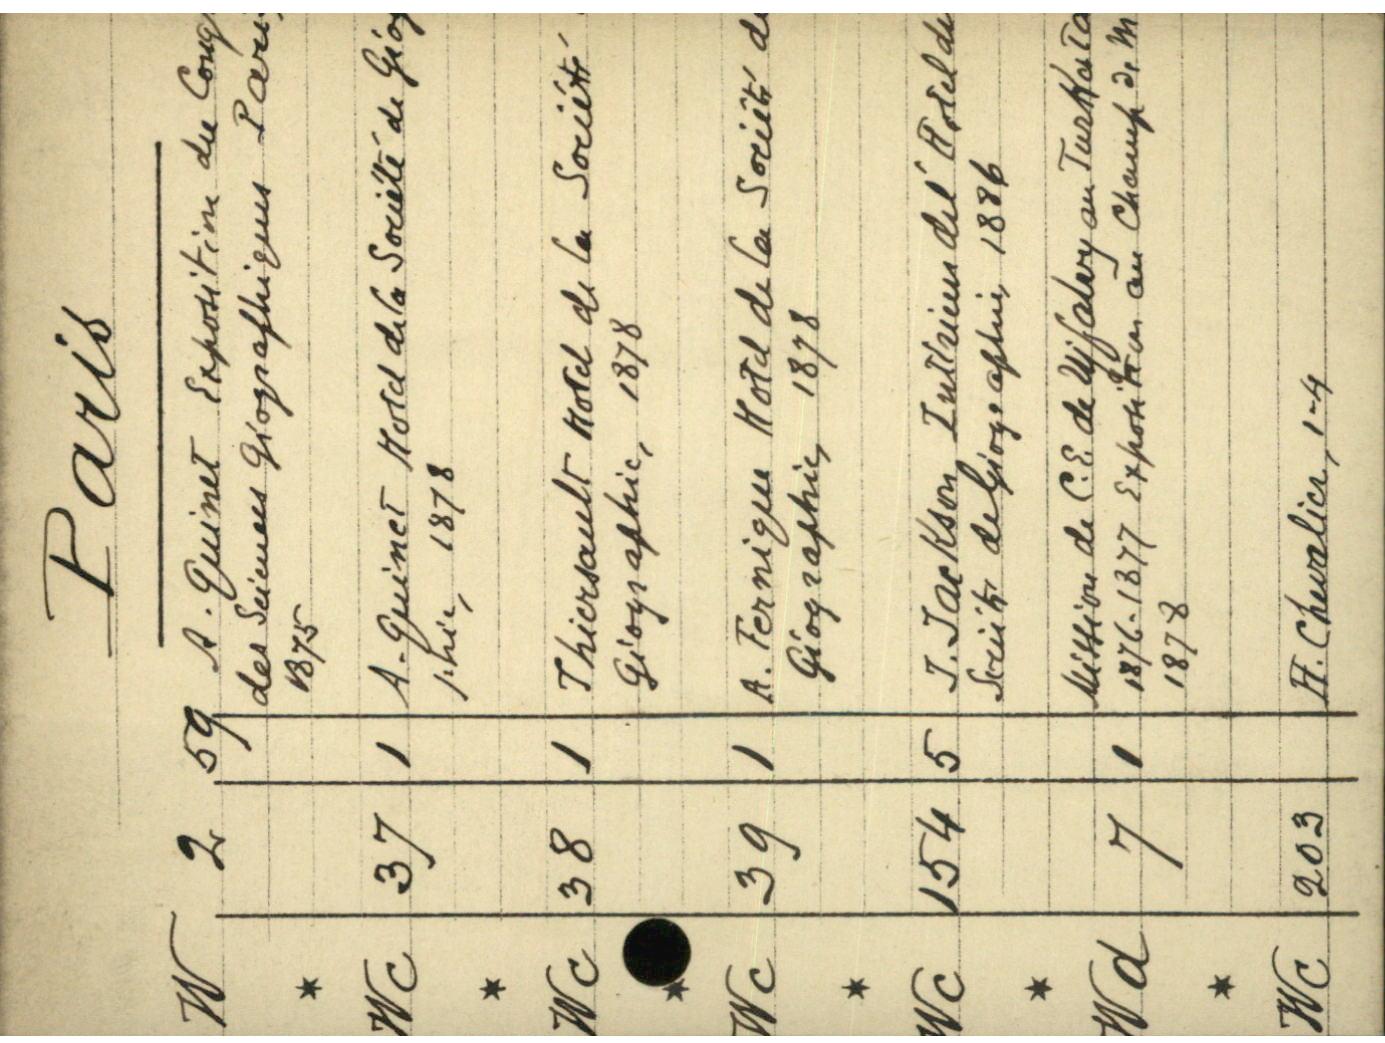 Paris
W 2 59 A. Quinet Exposition du Cong
des Sciences Géographiques Paris,
1875
*
Wc 37 1 A. Quinet Hotel de la Société de Géog
phie, 1878
*
Wc 38 1 Thiersault Hotel de la Société
Géographie, 1878
*
Wc 39 1 A. Fernique Hotel de la Société de
Géographie, 1878
*
Wc 154 5 J. Jackson Intérieur de l'Hotel de
Société de Géographie, 1886
*
Mission de C.E. de Ujfalvy au Turkesta
Wd 7 1 1876-1877 Exposition au Champ de M
1878
*
Wc 203 H. Chevalier, 1-4